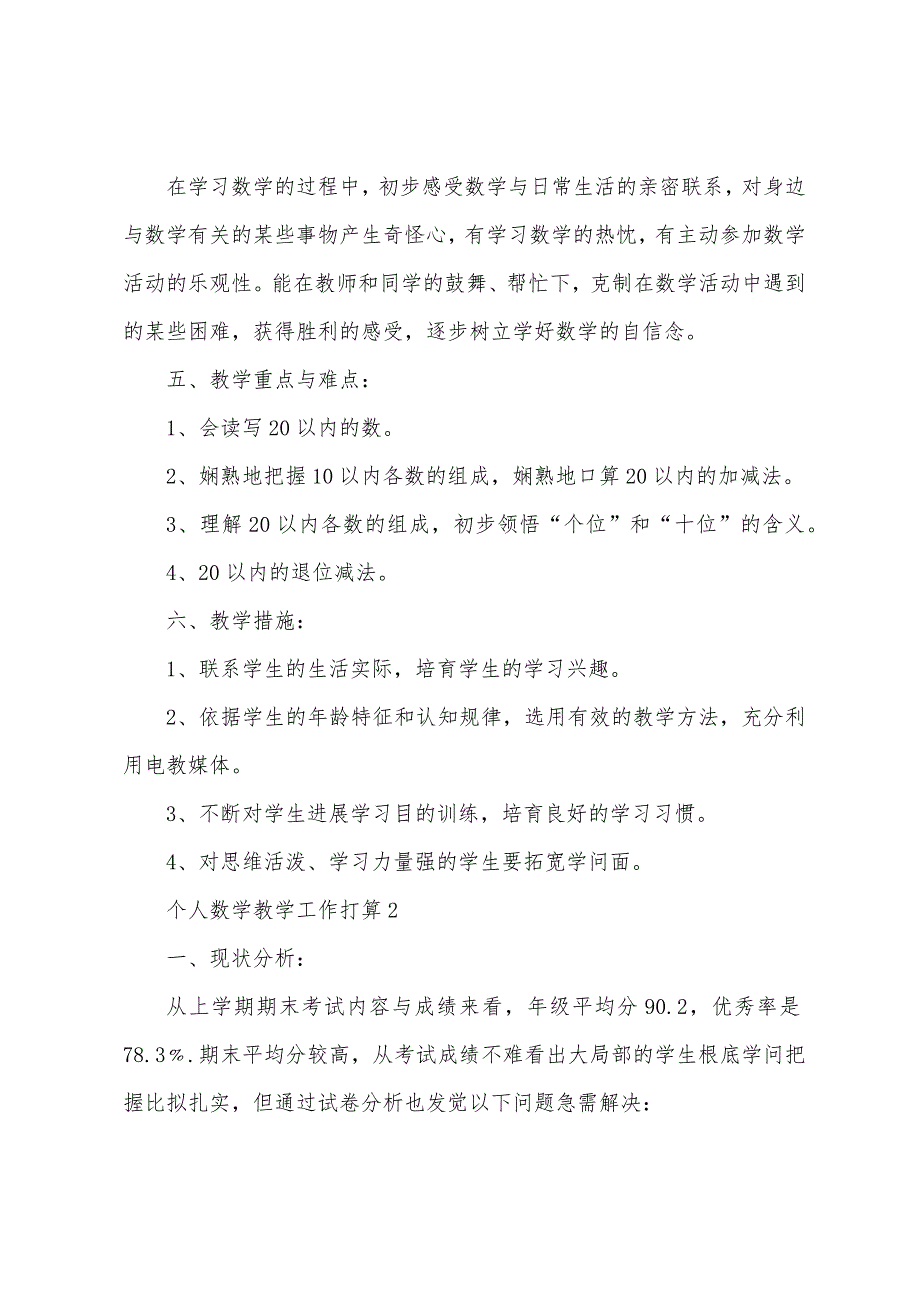 在学习数学的过程中，初步感受数学与日常生活的亲密联系，对身边
与数学有关的某些事物产生奇怪心，有学习数学的热忱，有主动参加数学
活动的乐观性。能在教师和同学的鼓舞、帮忙下，克制在数学活动中遇到
的某些困难，获得胜利的感受，逐步树立学好数学的自信念。
五、教学重点与难点：
1、会读写 20 以内的数。
2、娴熟地把握 10 以内各数的组成，娴熟地口算 20 以内的加减法。
3、理解 20 以内各数的组成，初步领悟“个位”和“十位”的含义。
4、20 以内的退位减法。
六、教学措施：
1、联系学生的生活实际，培育学生的学习兴趣。
2、依据学生的年龄特征和认知规律，选用有效的教学方法，充分利
用电教媒体。
3、不断对学生进展学习目的训练，培育良好的学习习惯。
4、对思维活泼、学习力量强的学生要拓宽学问面。
个人数学教学工作打算 2
一、现状分析：
从上学期期末考试内容与成绩来看，年级平均分 90.2，优秀率是
78.3％.期末平均分较高，从考试成绩不难看出大局部的学生根底学问把
握比拟扎实，但通过试卷分析也发觉以下问题急需解决：